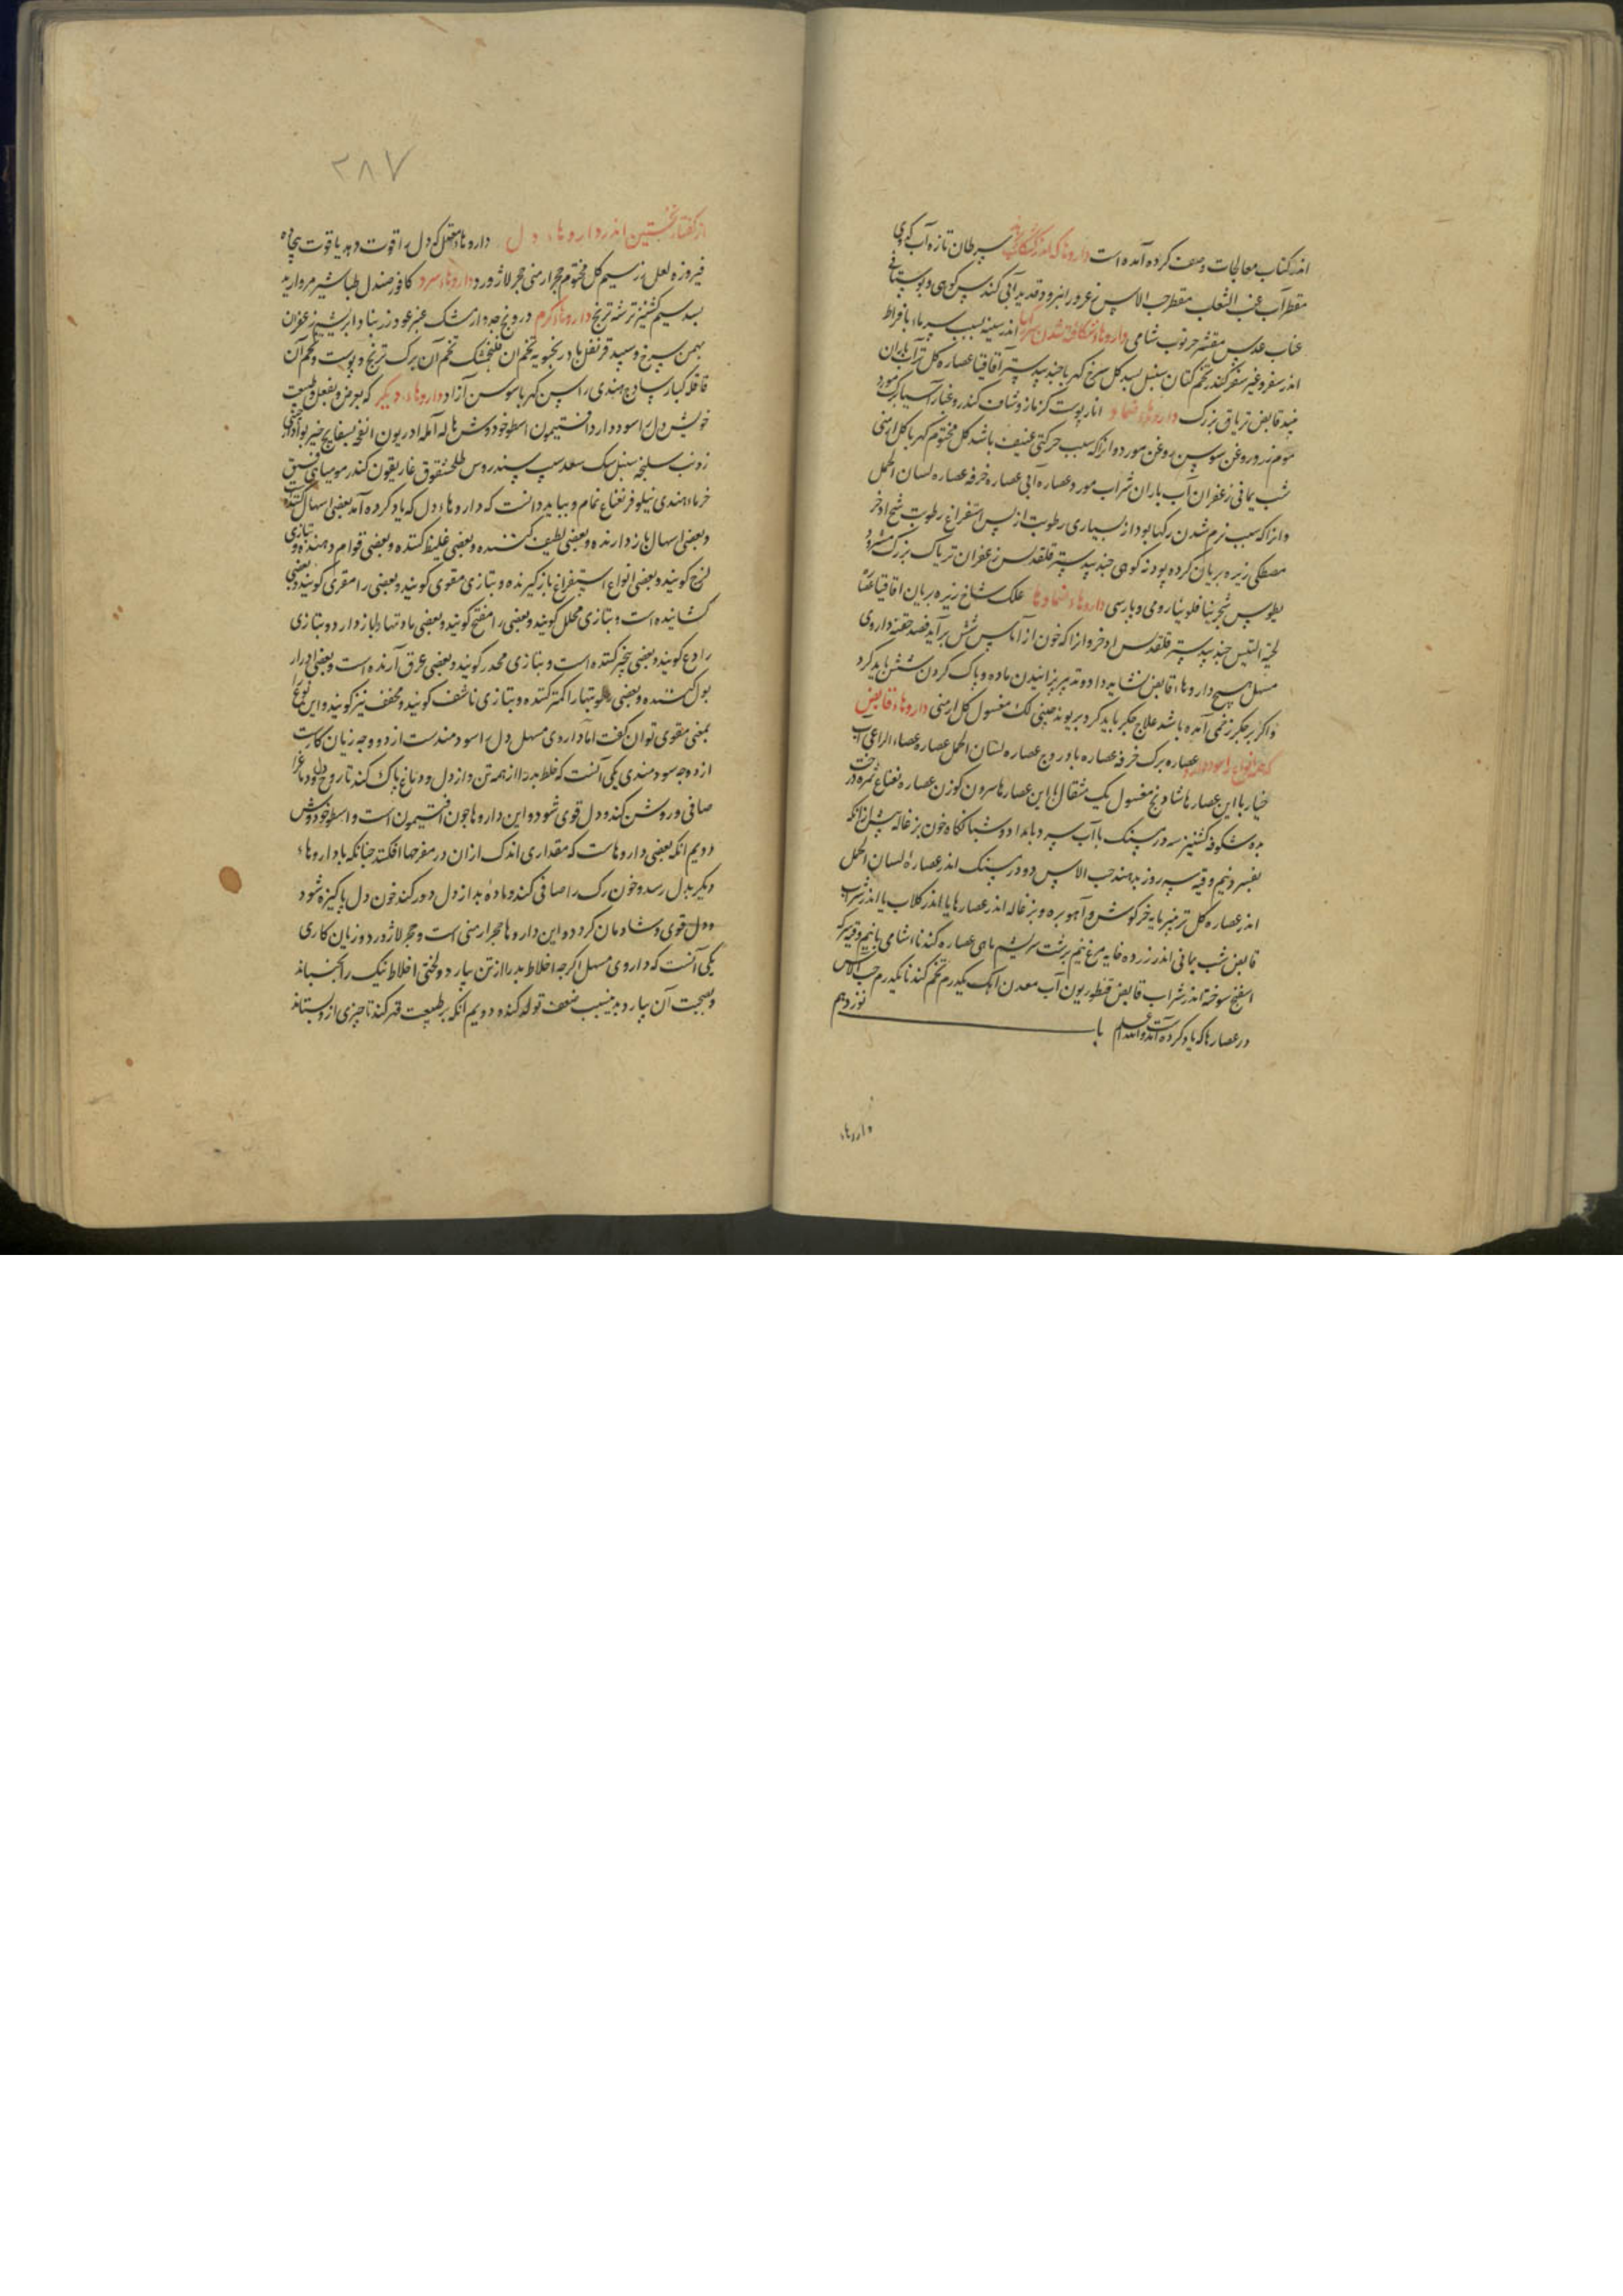 اندر کتاب معالجات وصفت کرده آمده است داروها که اندر سرطان تازه آب کدوی
مقطر آب عنب الثعلب مقطر حب الاس غرور انبرود قدید آبی کندس کوهی و بوستانی
عناب عدس مقشر خرنوب شامی داروهاء شکافته شدن رکها اندر سینه بسبب سرماء بافراط
اندر سفر و غیر سفر کندر تخم کتان سنبل بسد کل سرخ کهربا جندبیدستر آقاقیا عصاره کل تر آب باران
قابض تریاق بزرک داروهاء ضماد انار پوست کزمازو شاف کندر و غبار آسیا برک مورد
موم زرد روغن سوسن روغن مورد و انرا که سبب حرکتی عنیف باشد کل مختوم کهربا کل ارمنی
شب یمانی زعفران آب باران شراب مورد عصاره آبی عصاره خرفه عصاره لسان الحمل
و انرا که سبب نرم شدن رکها بود از بسیاری رطوبت از پس استفراغ رطوبت اذخر
مصطکی زیره بریان کرده پودنه کوهی جندبیدستر قلقدیس زعفران تریاک بزرک
شجرینا فلونیا رومی و پارسی داروهاء ضمادها علک شاخ زیره بریان اقاقیا
لحیة التیس جندبیدستر قلقدیس اذخر و انرا که خون از آماس شش برآید فصد حقنه داروی
مسهل هیچ داروهاء قابض نشاید داد و تدبیر پزانیدن ماده و پاک کردن شش باید کرد
و اکر بر جکر زخمی آمده باشد علاج جکر باید کرد بریوند چینی لک مغسول کل ارمنی داروهاء قابض
که همه انواع را سود دارد عصاره برک خرفه عصاره بادروج عصاره لسان الحمل عصاره عصاء الراعی آب
خیار با این عصارها شادنج مغسول یک مثقال با این عصارها سرون کوزن عصاره نعناع
شکوفه کشنیز سه درسنک با آب سرد بامداد و شبانکاه خون بزغاله پیش ازانکه
بفسرد نیم وقیه سه روز بدهند حب الاس دو درسنک اندر عصارۀ لسان الحمل
اندر عصاره کل تر پنیر مایه خرکوش و آهوبره و بزغاله اندر عصارها یا اندر کلاب یا اندر شراب
قابض شب یمانی اندر زرده خایه مرغ نیم برشت سریشم ماهی عصاره کندناء شامی با نیم وقیه سرکه
اسفنج سوخته اندر شراب قابض قنطوریون آب معدن آهک یکدرم تخم کندنا یکدرم حب الاس
در عصارها که یاد کرده آمد والله اعلم باب نوزدهم
داروهاء
٢٨٧
از کفتار نخستین اندر داروهاء دل داروهاء معتدل که دل را قوت دهد یاقوت بیجاده
فیروزه لعل زر سیم کل مختوم حجر ارمنی حجر لاژورد داروهاء سرد کافور صندل طباشیر مروارید
بسد سیم کشنیز ترشه ترنج داروهاء کرم درونج جدوار مشک عنبر عود زرنباد ابریشم زعفران
بهمن سرخ و سپید قرنفل بادرنجبویه تخم ان فلنجمشک تخم آن برک ترنج و پوست و تخم آن
قاقله کبار ساذج هندی راسن کهربا سوسن آزاد داروهاء دیکر که بعرض و بفعل و طبیعت
خویش دل را سود دارد افتیمون اسطوخودوس هلیله آمله ادریون انفحه بسفایج خیربوا
زرنب سلیخه سنبل سک سعد سپندروس طلحشقوق غاریقون کندر مومیای فستق
خرماء هندی نیلوفر نعناع نمام و بباید دانست که داروهاء دل که یاد کرده آمد بعضی اسهال کننده است
و بعضی اسهال باز دارنده و بعضی لطیف کننده و بعضی غلیظ کننده و بعضی قوام دهنده و بتازی
لزج کویند و بعضی انواع استفراغ باز کیرنده و بتازی مقوی کویند و بعضی را مغری کویند و بعضی
کشاینده است و بتازی محلل کویند و بعضی را مفتح کویند و بعضی مادتها را باز دارد و بتازی
رادع کویند و بعضی خدر کننده است و بتازی مخدر کویند و بعضی عرق آرنده است و بعضی ادرار
بول کننده و بعضی رطوبتها را کمتر کننده و بتازی ناشف کویند و مجفف نیز کویند و این نوع را
بمعنی مقوی توان کفت اما داروی مسهل دل را سودمندست از دو وجه زیان کارست
از دو وجه سودمندی یکی آنست که خلط بد را از همه تن و از دل و دماغ پاک کند تا روح دل و دماغ را
صافی و روشن کند و دل قوی شود و این داروها چون افتیمون است و اسطوخودوس
دویم انکه بعضی داروهاست که مقداری اندک ازان در مفرحها افکنند چنانکه با داروهاء
دیکر بدل رسد و خون رک را صافی کند و مادۀ بد از دل دور کند خون دل پاکیزه شود
و دل قوی و شادمان کردد و این داروها حجر ارمنی است و حجر لاژورد و زیان کاری
یکی آنست که داروی مسهل اکرچه اخلاط بد را از تن بیارد و لختی اخلاط نیک را بجنباند
و بصحبت آن بیارد بدین سبب ضعف تولد کند و دویم انکه بر طبیعت قهر کند تا چیزی ازو بستاند